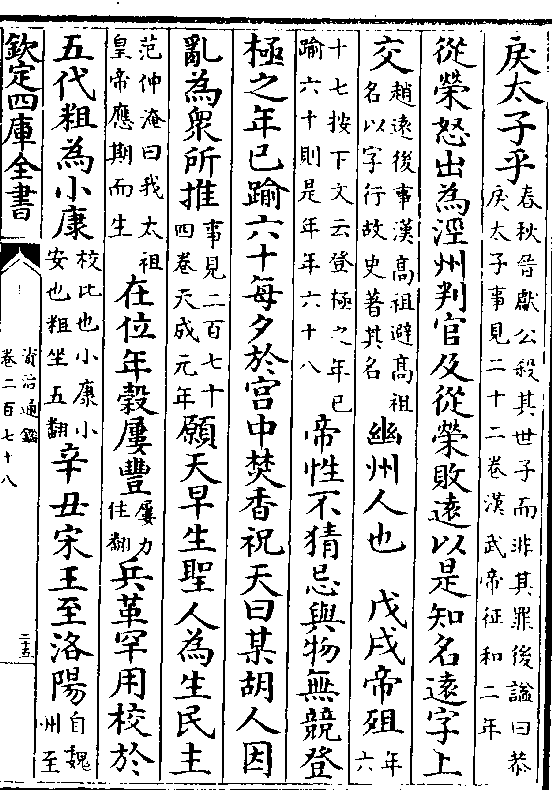 戾太子乎春秋晉獻公殺其世子而非其罪後諡曰恭戾太子事見二十二卷漢武帝征和二年
從榮怒出為涇州判官及從榮敗遠以是知名遠字上
交趙遠後事漢高祖避高祖名以字行故史著其名幽州人也　戊戌帝殂年六
十七按下文云登極之年已踰六十則是年年六十八帝性不猜忌與物無競登
極之年已踰六十每夕於宫中焚香祝天曰某胡人因
亂為衆所推事見二百七十四卷天成元年願天早生聖人為生民主
范仲淹曰我太祖皇帝應期而生在位年穀屢豐屢力住翻兵革罕用校於
五代粗為小康校比也小康小安也粗坐五翻辛丑宋王至洛陽自魏州至
欽定四庫全書
資治通鑑
卷二百七十八
二十五